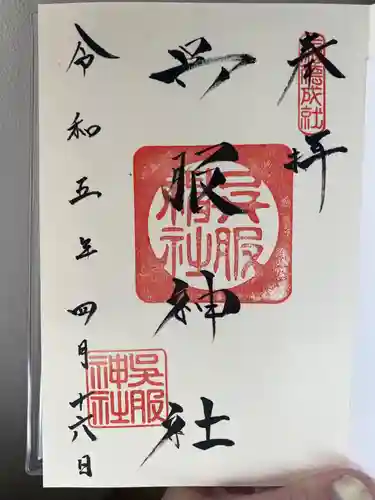 奉拝
呉服神社
呉服
神社
呉服
神社
令和五年四月十六日